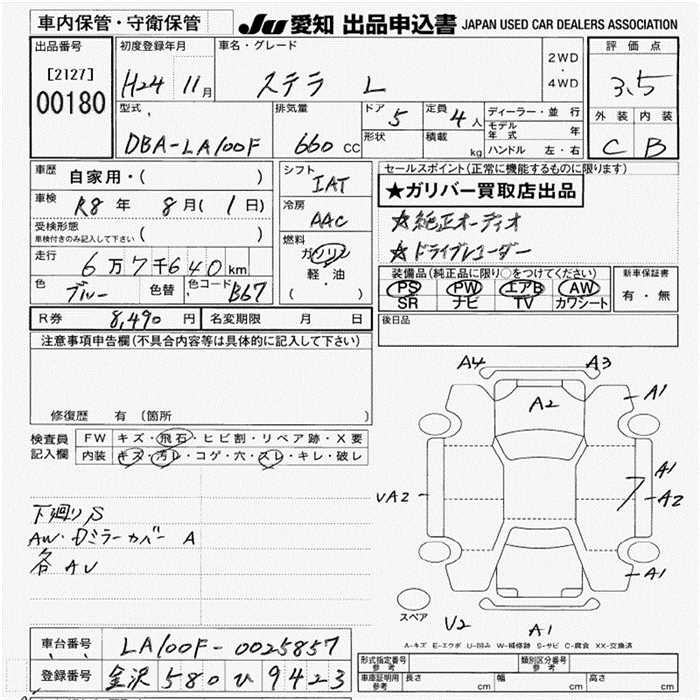 車内保管・守衛保管
JU 愛知 出品申込書 JAPAN USED CAR DEALERS ASSOCIATION
出品番号 [2127] 00180
初度登録年月 H24 11月
車名・グレード ステラ L
2WD・4WD
評価点 3.5
外装 内装
C B
型式 DBA-LA100F
排気量 660 CC
ドア 5
形状
定員 4人
積載 kg
ディーラー・並行
モデル年式 年
ハンドル 左・右
車歴 自家用・( )
車検 R8年 8月(1日)
受検形態 車検付きのみ記入して下さい ( )
走行 6万7千640km
色 ブルー 色替 色コード B67
シフト IAT
冷房 AAC
燃料 ガソリン 軽・油 ( )
セールスポイント(正常に機能するものに限ります)
★ガリバー買取店出品
☆純正オーディオ
☆ドライブレコーダー
装備品(純正品に限り○をつけてください)
PS PW エアB AW
SR ナビ TV カワシート
新車保証書 有・無
R券 8,490円 名変期限 月 日
後日品
注意事項申告欄(不具合内容等は具体的に記入して下さい)
修復歴 有(箇所 )
検査員記入欄
FW キズ・飛石・ヒビ割・リペア跡・X要
内装 キズ・汚レ・コゲ・穴・スレ・キレ・破レ
下廻りS
AW・Dミラーカバー A
各AU
A4 A3
A1
A2
A1
VA2 A2
A1
スペア
V2 A1
A-キズ E-エクボ U-凹み W-補修跡 S-サビ C-腐食 XX-交換済
車台番号 LA100F-0025857
登録番号 金沢 580 ひ 9423
形式指定番号 参考 類別区分番号 参考
車庫証明用 参考 長さ cm 幅 cm 高さ cm